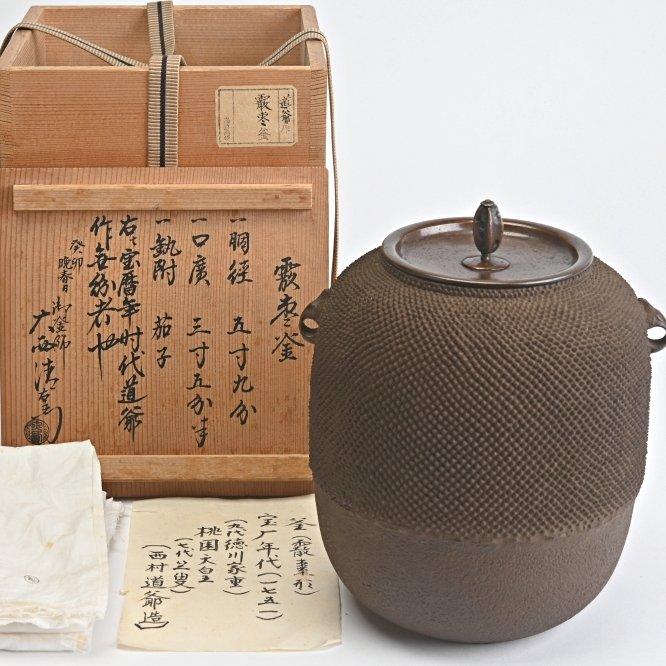 道爺作
霰棗釜
霰棗釜
一胴径 五寸九分
一口廣 三寸五分半
一釻附 茄子
右ハ宝暦年時代道爺
作無紛者也
癸卯
晩春日
御釜師
大西清右衛門
釜(霰棗形)
宝厂年代(一七五一)
(九代徳川家重)
桃园天皇
(七代
(西村道爺造)